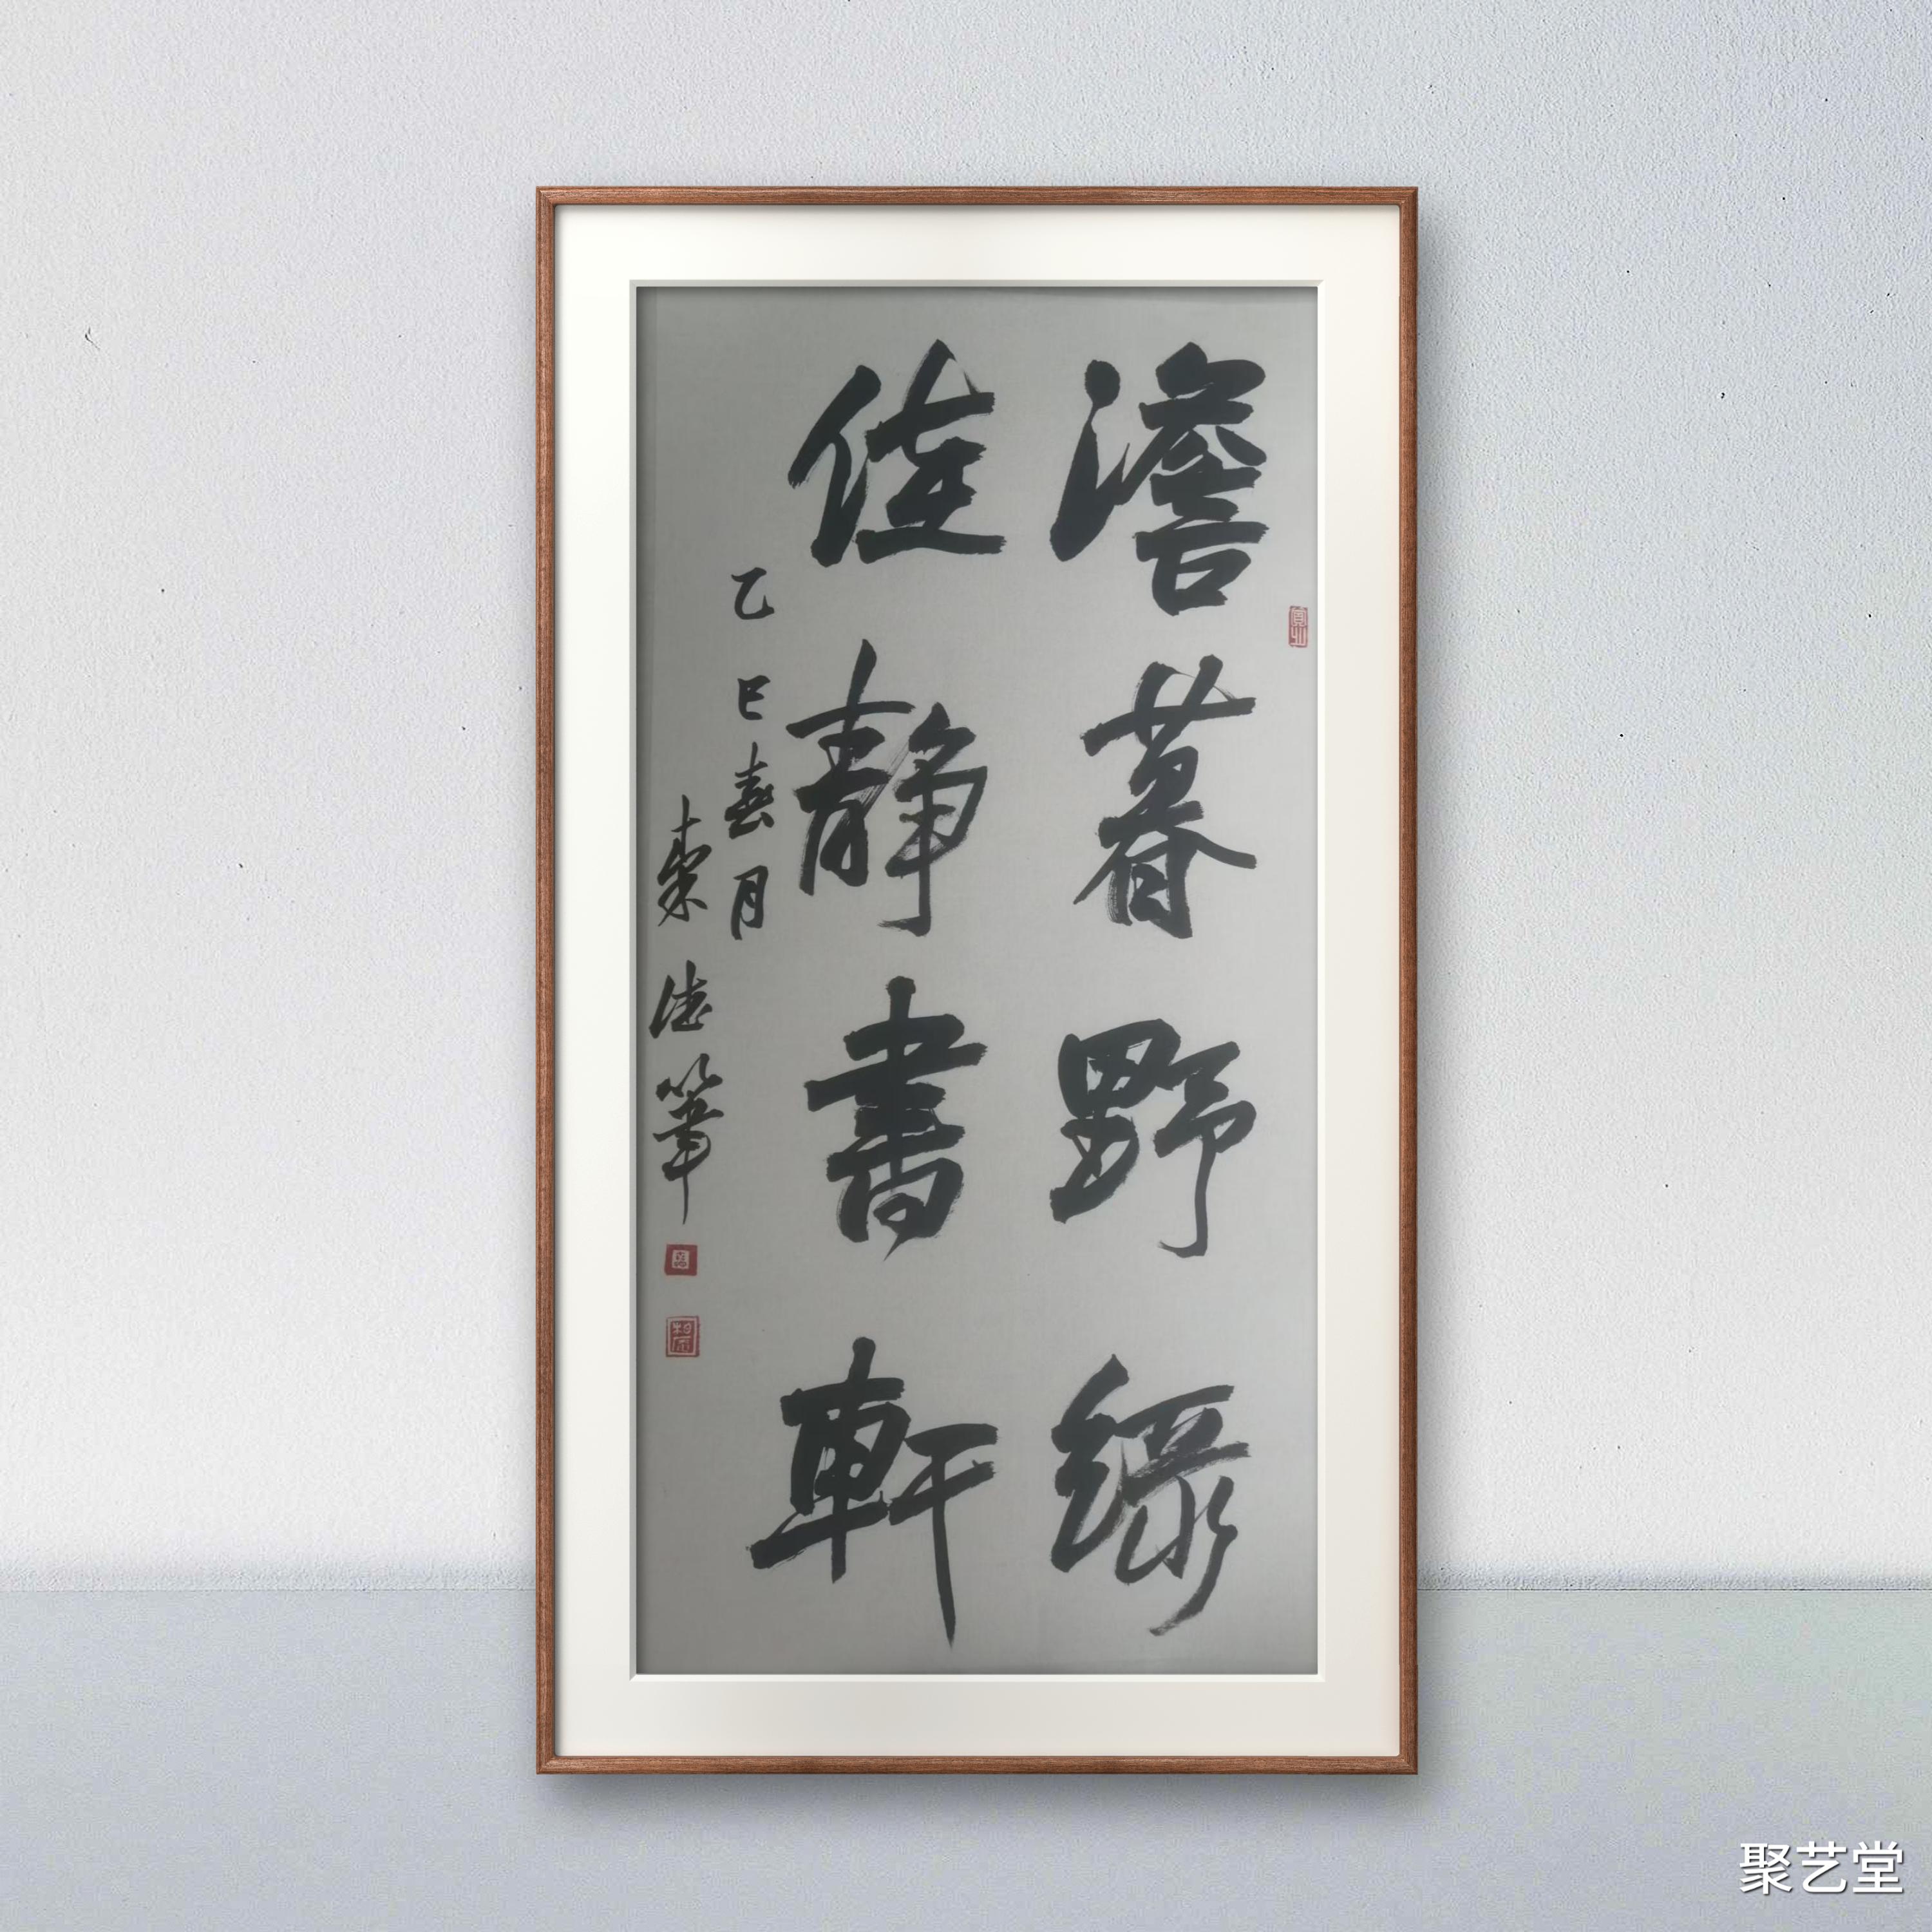 澹暮野綠
佳静書軒
乙巳春月
德筆
聚艺堂